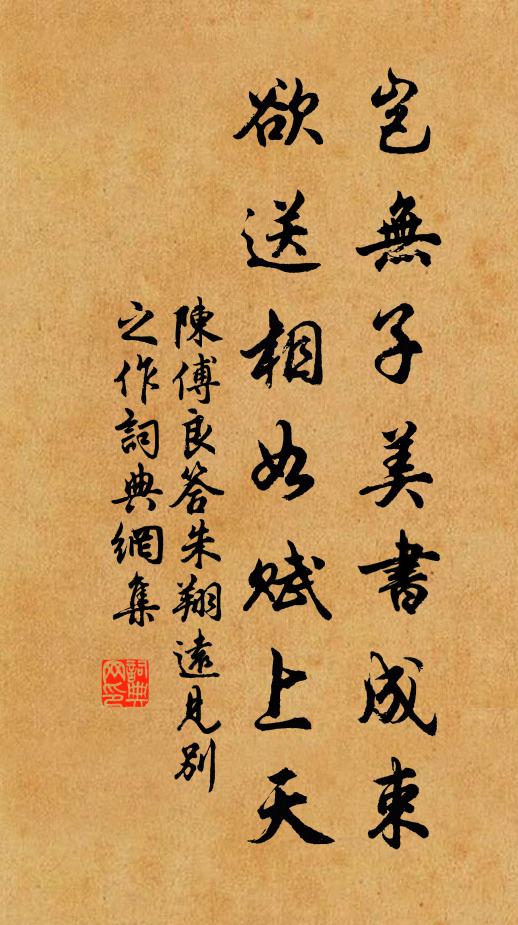 豈無子美書成束
欲送相如賦上天
陳傅良答朱翔遠見別
之作詞典網集
詞典
网印